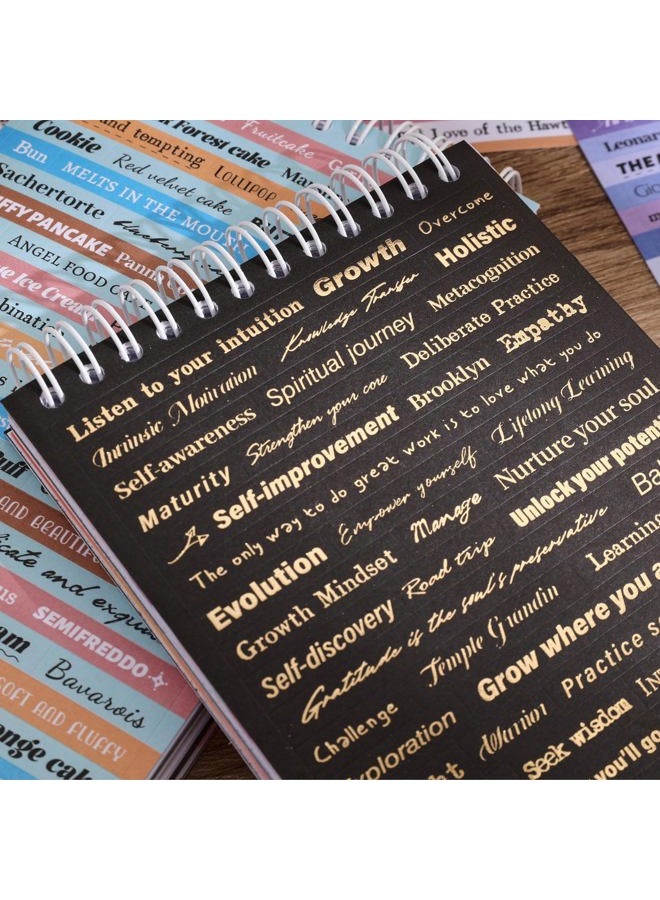 and tempting Forest cake Fruitcake
Cookie
Bun Red velvet cake LOLLIPOP
MELTS IN THE MOUTH
Sachertorte
FFY PANCAKE
ANGEL FOOD
Ice Cream
binati
Love of the Hawt
Leonar
THE
Listen to your intuition Growth Overcome
Intrinsic Motivation Knowledge Transfer Holistic
Self-awareness Spiritual journey Metacognition
Maturity Strengthen your core Deliberate Practice
Self-improvement Brooklyn Empathy
The only way to do great work is to love what you do
Evolution Empower yourself Lifelong Learning
Growth Mindset Manage Nurture your soul
Self-discovery Road trip Unlock your potent
Gratitude is the soul's preservative Ba
Challenge Temple Grandin Learning
xploration Grow where you a
Warrior Practice s
Seek wisdom In
you'll go
AND BEAUTIFU
icate and exqui
us SEMIFREDDO
am Bavarois
SOFT AND FLUFFY
onge cak